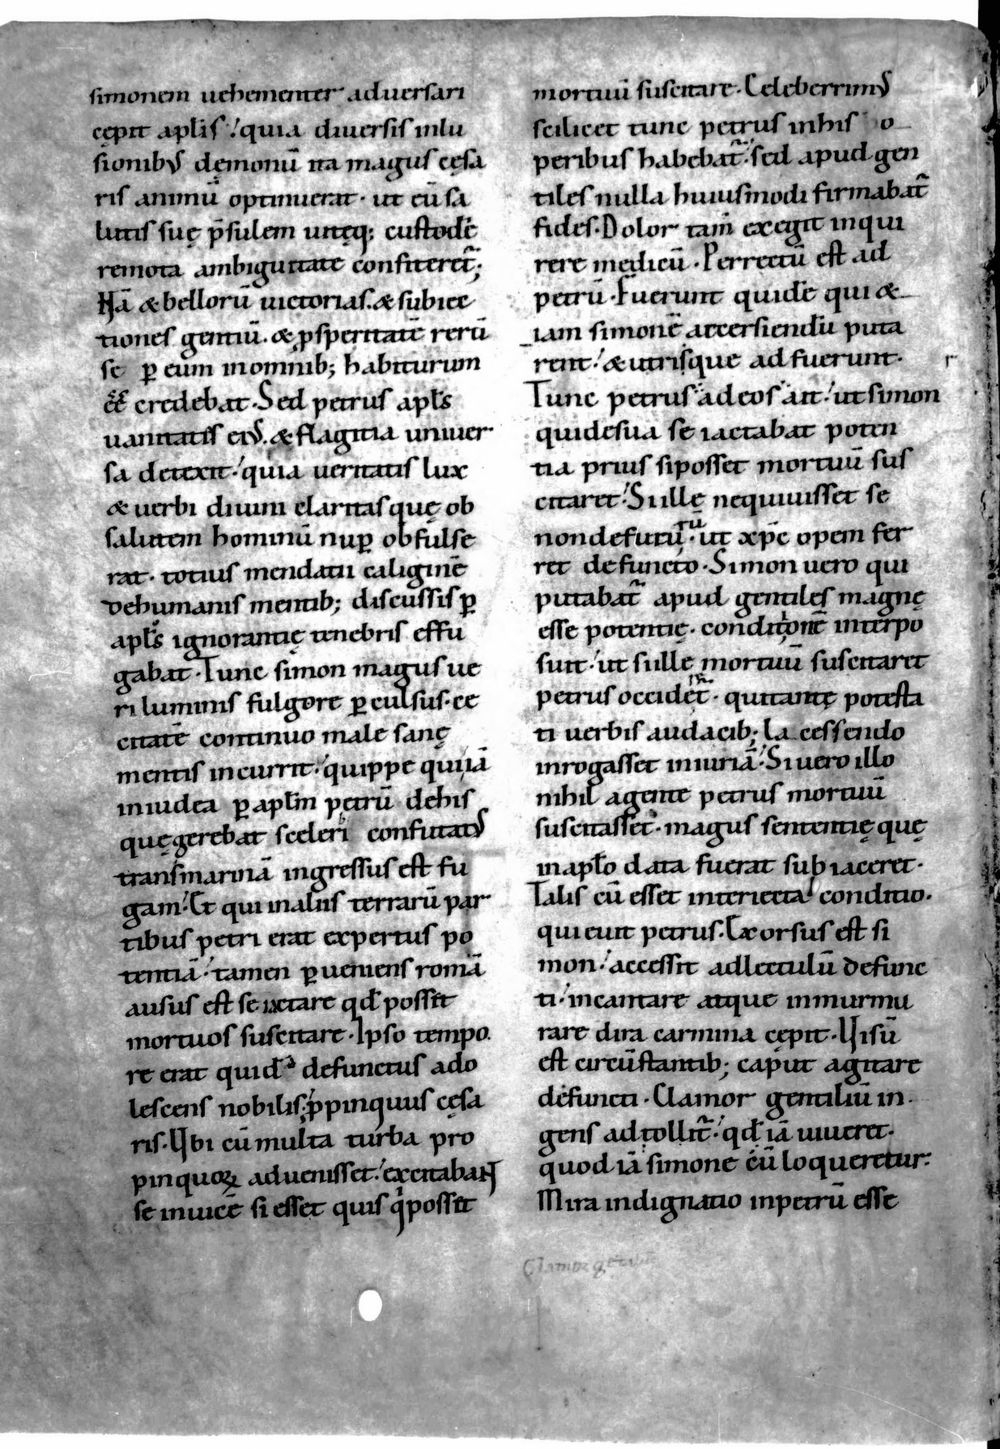 simonem uehementer aduersari
cępit aplis.' quia diuersis inlu
sionibus demonū ita magus cęsa
ris animū optinuerat · ut eū sa
lutis suę p̄sulem uitęq; custodē
remota ambiguitate confiteret̄;
Nā & bellorū uictorias. & subiec
tiones gentiū. & ꝓsperitatē rerū
se ꝑ eum inomnib; habiturum
ēē credebat · Sed petrus apls
uanitatis eius. & flagitia uniuer
sa detexit.' quia ueritatis lux
& uerbi diuini claritas quę ob
salutem hominū nuꝑ obfulse
rat · totius mendacii caliginē
dehumanis mentib; discussis ꝑ
apls ignorantię tenebris effu
gabat · Tunc simon magus ue
ri luminis fulgore ꝑculsus · ce
citatē continuo male sanę
mentis incurrit.' quippe qui iā
iniudea ꝑ aplm petrū dehis
quę gerebat sceleri confutatus
transmarinā ingressus est fu
gam.' Et qui inaliis terrarū par
tibus petri erat expertus po
tentiā.' tamen ꝑueniens romā
ausus est se iactare qd possit
mortuos suscitare · Ipso tempo
re erat quidā defunctus ado
lescens nobilis. ꝓpinquus cęsa
ris · Ubi cū multa turba pro
pinquoꝝ aduenisset.' excitabant
se inuicē si esset quis q̇ possit
mortuū suscitare · Celeberrimus
scilicet tunc petrus inhis o
peribus habebat̄.' sed apud gen
tiles nulla huiusmodi firmabat̄
fides · Dolor tam̄ exegit inqui
rere medicū · Perrectū est ad
petrū · Fuerunt quidē qui &
iam simonē arcersiendū puta
rent.' & utrisque adfuerunt ·
Tunc petrus adeos ait.' ut simon
quidesua se iactabat poten
tia prius siposset mortuū sus
citaret.' Si ille nequiuisset se
nondefuturū · ut xp̄c opem fer
ret defuncto · Simon uero qui
putabat̄ apud gentiles magnę
esse potentię · conditionē interpo
suit.' ut si ille mortuū suscitaret
petrus occideret̄ · qui tantę potesta
ti uerbis audacib; lacessendo
inrogasset iniuriā.' Si uero illo
nihil agente petrus mortuū
suscitasset · magus sententię quę
inaplo data fuerat subiaceret ·
Talis cū esset interiecta conditio ·
quieuit petrus · Exorsus est si
mon.' accessit adlectulū defunc
ti.' incantare atque inmurmu
rare dira carmina cępit · Uisū
est circūstantib; caput agitare
defuncti · Clamor gentiliū in
gens adtollit̄.' qd iā uiueret ·
quod iā simone cū loqueretur ·
Mira indignatio inpetrū esse
Clamor